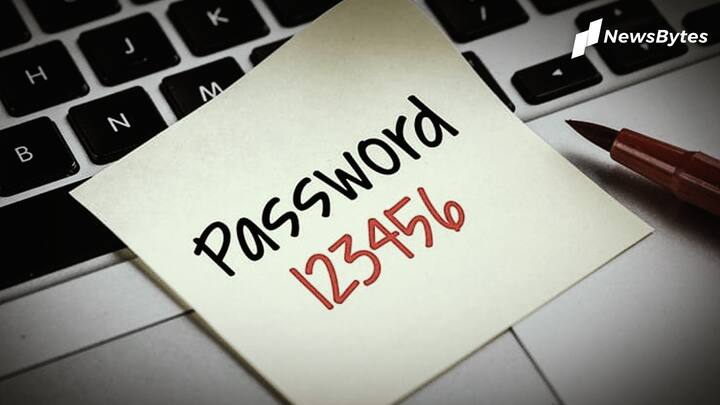 NewsBytes
H
J
K
B
N
M
Password
123456